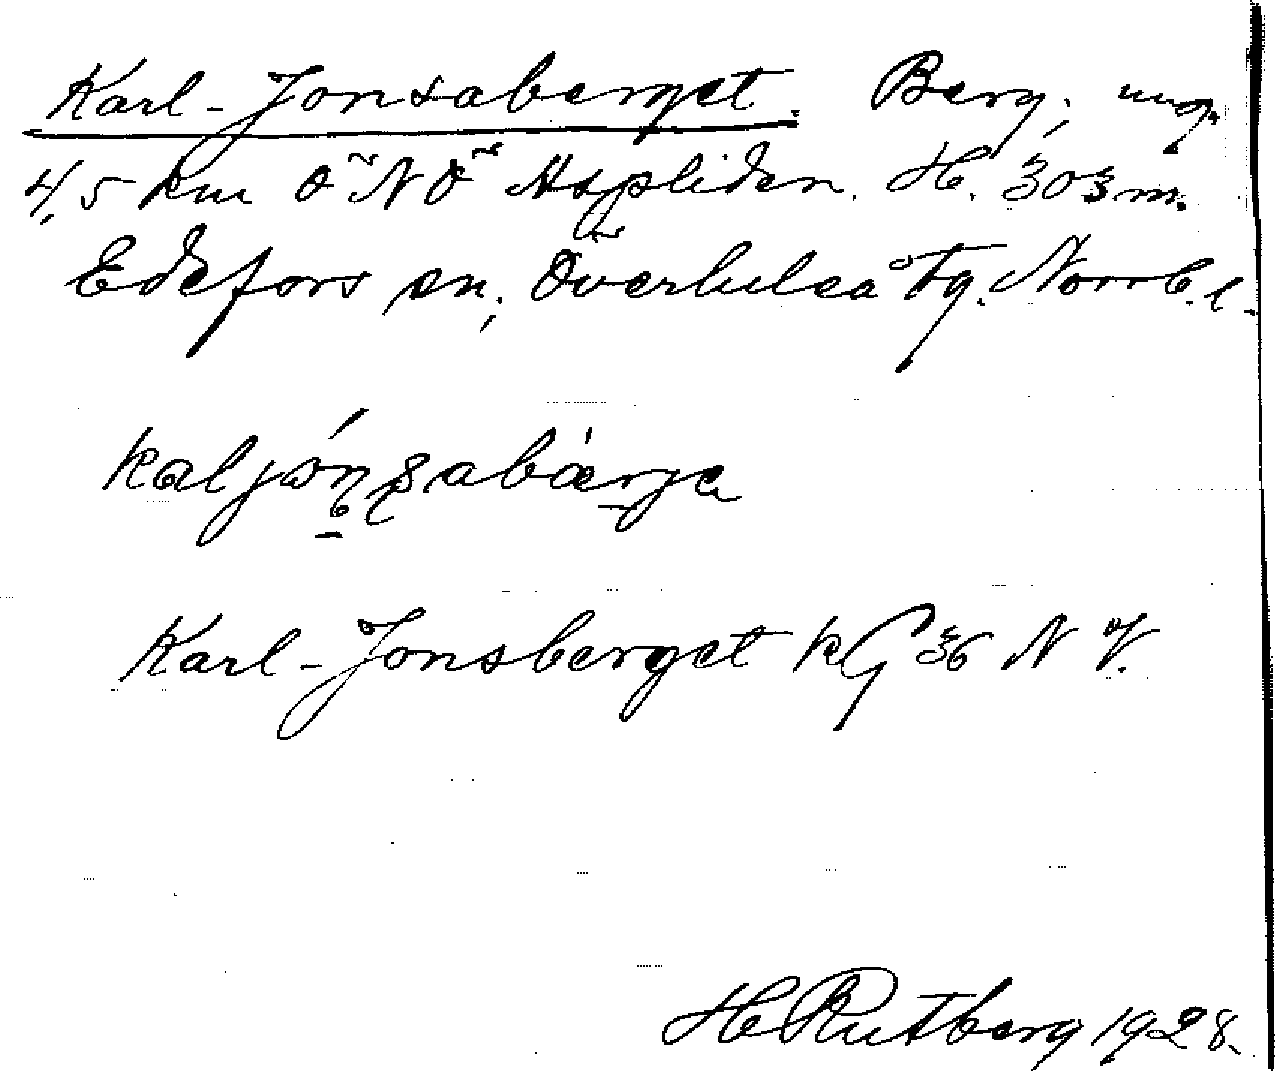 Karl-Jonsaberget. Berg, ung.
4,5 km ÖNÖ Aspliden. H. 303 m.
Edefors sn, Överluleå tg. Norrb. l.
kaljónsabærje
Karl-Jonsberget kG 36 NV.
H Rutberg 1928.